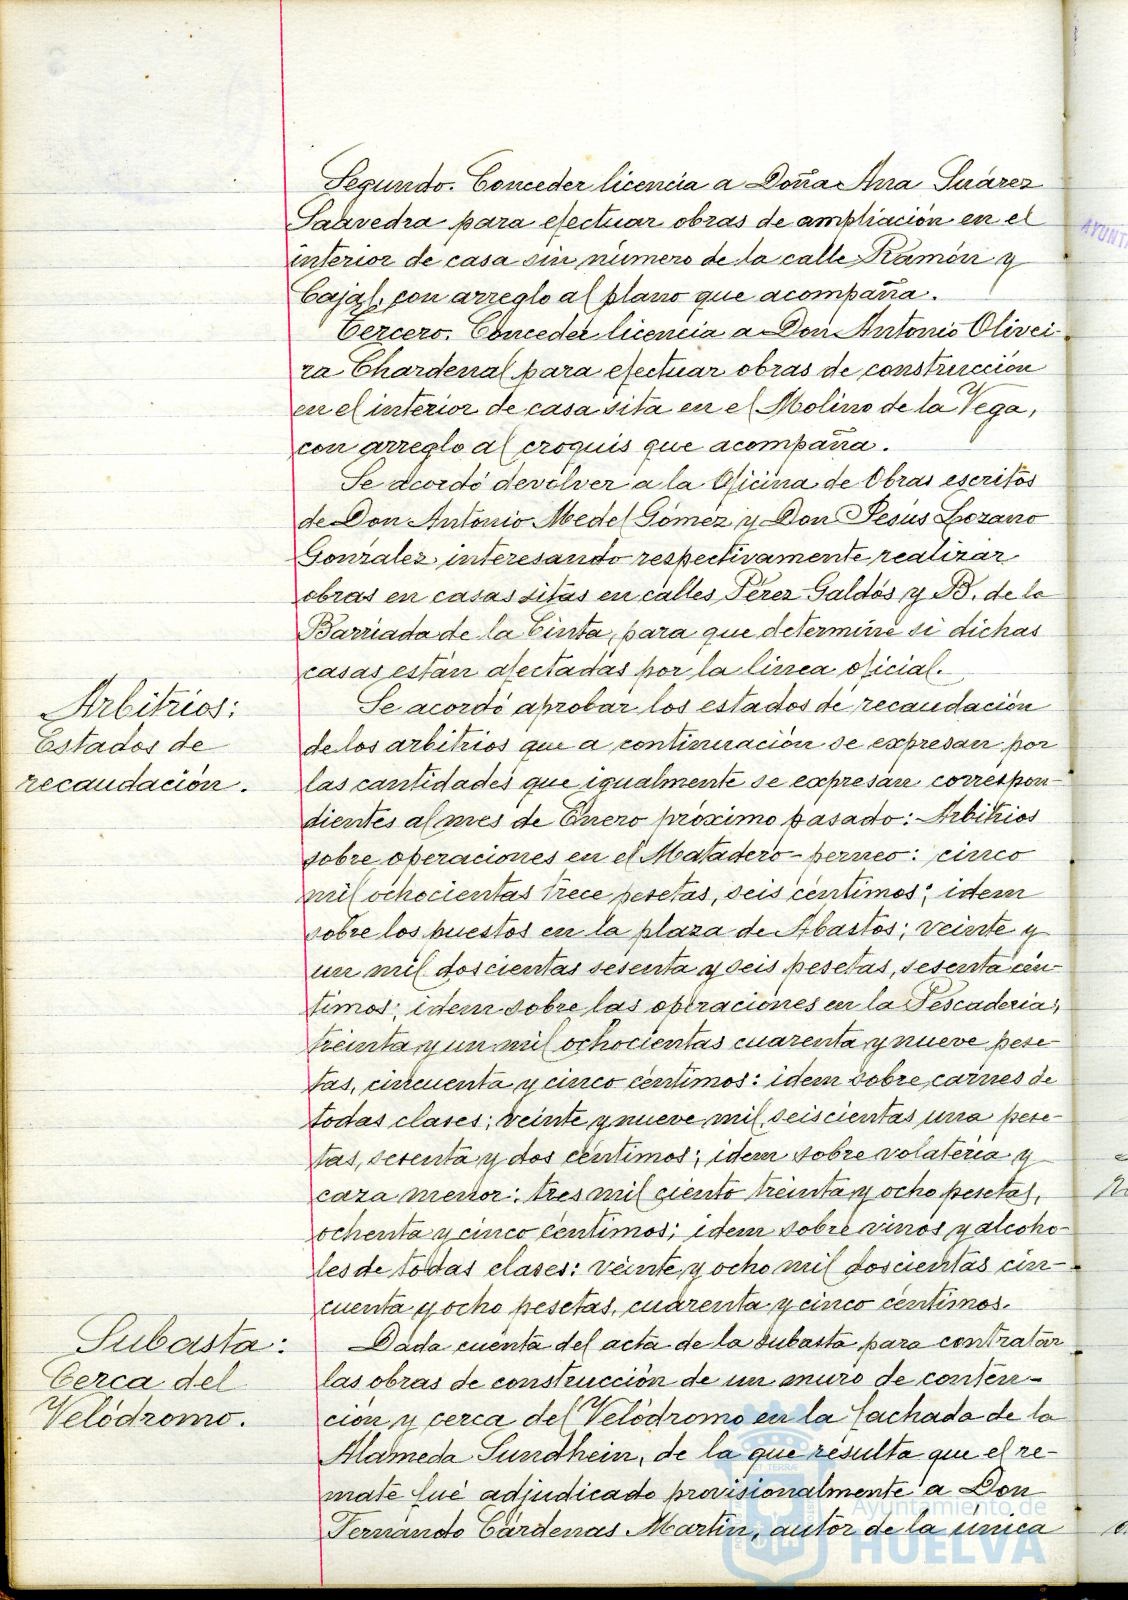 Segundo. Conceder licencia a Doña Ana Suárez
Saavedra para efectuar obras de ampliación en el
interior de casa sin número de la calle Ramón y
Cajal, con arreglo al plano que acompaña.
Tercero. Conceder licencia a Don Antonio Olivei-
ra Chardenal para efectuar obras de construcción
en el interior de casa sita en el Molino de la Vega,
con arreglo al croquis que acompaña.
Se acordó devolver a la Oficina de Obras escritos
de Don Antonio Medel Gómez y Don Jesús Lozano
González interesando respectivamente realizar
obras en casas sitas en calles Pérez Galdós y B. de la
Barriada de la Cinta, para que determine si dichas
casas están afectadas por la linea oficial.
Arbitrios:
Estados de
recaudación.
Se acordó aprobar los estados de recaudación
de los arbitrios que a continuación se expresan por
las cantidades que igualmente se expresan correspon-
dientes al mes de Enero próximo pasado: Arbitrios
sobre operaciones en el Matadero-perneo: cinco
mil ochocientas trece pesetas, seis céntimos; idem
sobre los puestos en la plaza de Abastos; veinte y
un mil doscientas sesenta y seis pesetas, sesenta cén-
timos; idem sobre las operaciones en la Pescaderia;
treinta y un mil ochocientas cuarenta y nueve pese-
tas, cincuenta y cinco céntimos: idem sobre carnes de
todas clases; veinte y nueve mil seiscientas una pese-
tas, sesenta y dos céntimos; idem sobre volateria y
caza menor; tres mil ciento treinta y ocho pesetas,
ochenta y cinco céntimos; idem sobre vinos y alcoho-
les de todas clases: veinte y ocho mil doscientas cin-
cuenta y ocho pesetas, cuarenta y cinco céntimos.
Subasta:
Cerca del
Velódromo.
Dada cuenta del acta de la subasta para contratar
las obras de construcción de un muro de conten-
ción y cerca del Velódromo en la fachada de la
Alameda Sundhein, de la que resulta que el re-
mate fué adjudicado provisionalmente a Don
Fernando Cárdenas Martín, autor de la única
Ayuntamiento de
HUELVA